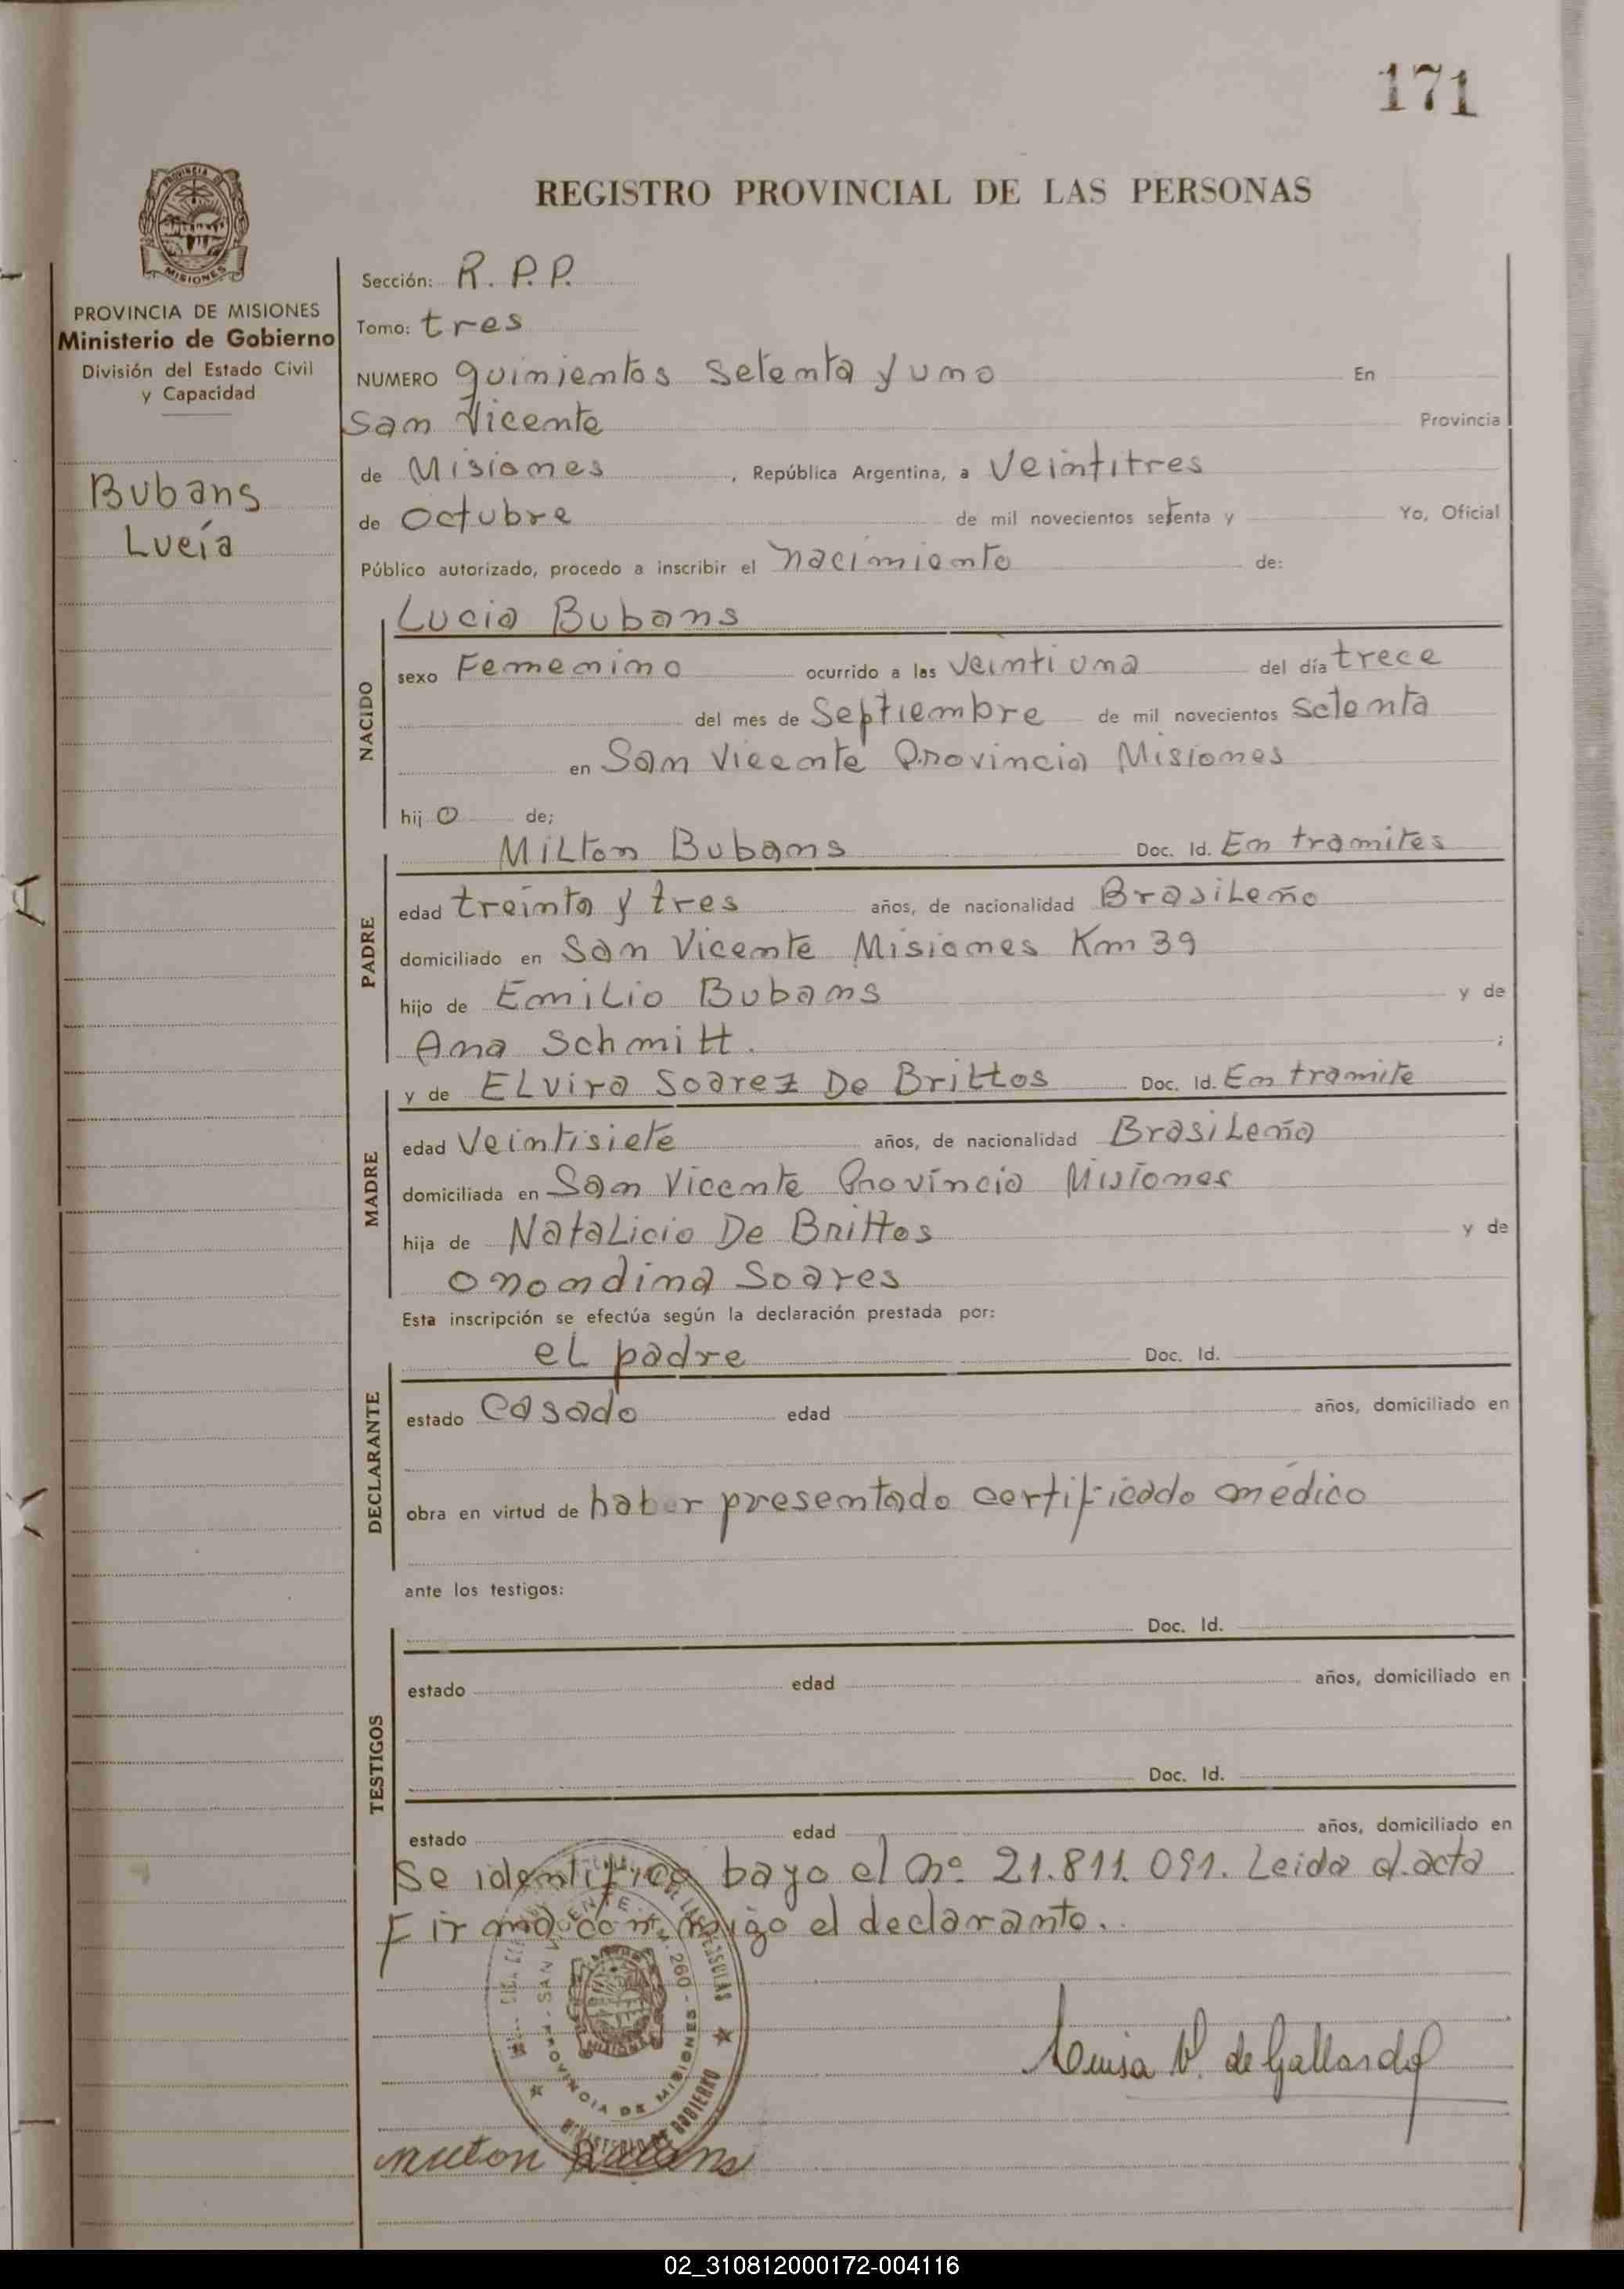 171
REGISTRO PROVINCIAL DE LAS PERSONAS
PROVINCIA DE MISIONES
Ministerio de Gobierno
División del Estado Civil
y Capacidad
Bubans
Lucía
Sección: R. P.P.
Tomo: tres
NUMERO quinientos setenta y uno En
San Vicente Provincia
de Misiones, República Argentina, a Veintitres
de Octubre de mil novecientos setenta y Yo, Oficial
Público autorizado, procedo a inscribir el nacimiento de:
NACIDO
Lucia Bubans
sexo Femenino ocurrido a las veinti una del día trece
del mes de Septiembre de mil novecientos setenta
en San Vicente Provincia Misiones
hij o de;
PADRE
Milton Bubans Doc. Id. En tramites
edad treinta y tres años, de nacionalidad Brasileño
domiciliado en San Vicente Misiones Km 39
hijo de Emilio Bubans y de
Ana Schmitt. ;
MADRE
y de Elvira Soarez De Brittos Doc. Id. En tramite
edad Veintisiete años, de nacionalidad Brasileña
domiciliada en San Vicente Província Misiones
hija de Natalicio De Brittos y de
Soares
Esta inscripción se efectúa según la declaración prestada por:
DECLARANTE
el padre Doc. Id.
estado Casado edad años, domiciliado en
obra en virtud de haber presentado certificado médico
ante los testigos:
TESTIGOS
Doc. Id.
estado edad años, domiciliado en
Doc. Id.
estado edad años, domiciliado en
Se identifica bayo el nº 21.811.091. Leida el acta
Firma conmigo el declarante.
SAN VICENTE - KM. 260 - PROVINCIA DE MISIONES
MINISTERIO DE GOBIERNO
MISIONES
Luisa V. de Gallardo
Milton Bubans
02_310812000172-004116